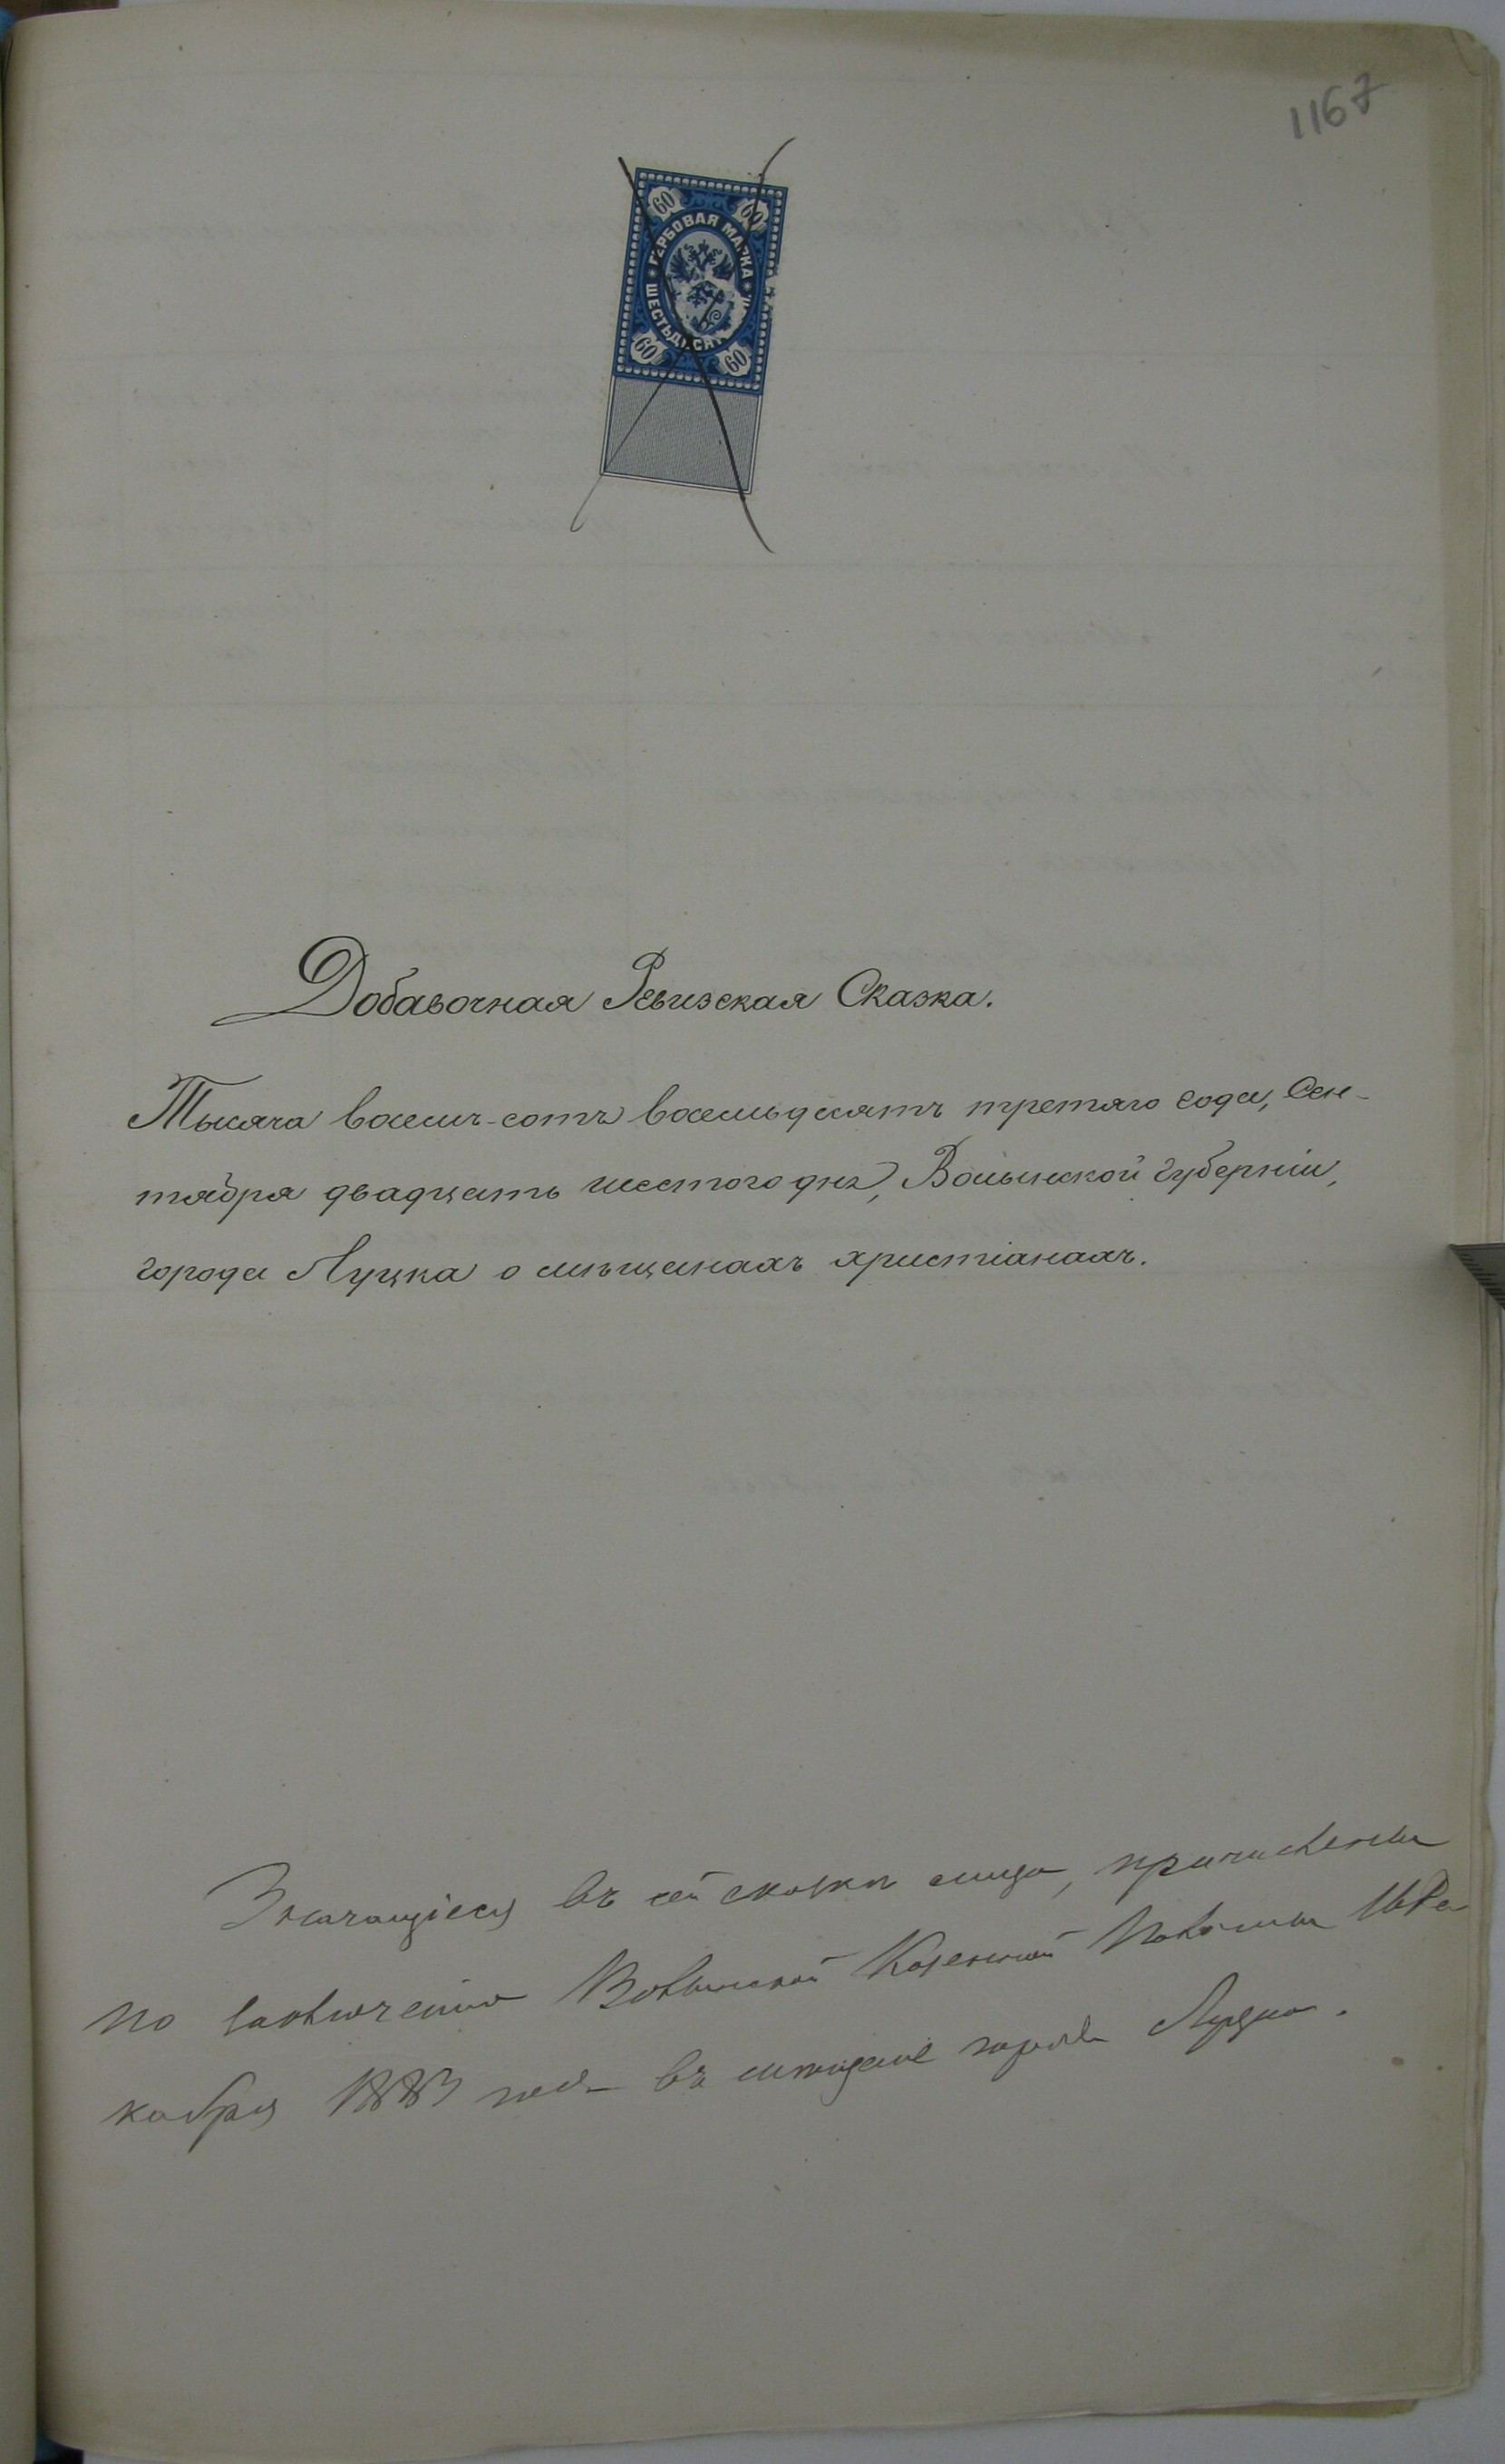 1167
60 60
ГЕРБОВАЯ МАРКА
ШЕСТЬДЕСЯТ
60 60
Добавочная Ревизская Сказка.
Тысяча восемь-сотъ восемьдесятъ третяго года, Сен-
тября двадцать шестого дня, Волынской Губерніи,
города Луцка о мѣщанахъ христіанахъ.
Значащіеся въ сей сказкѣ лица, причислены
по заключенію Волынской Казенной Палаты
кабря 1883 года въ мѣщане города Луцка.